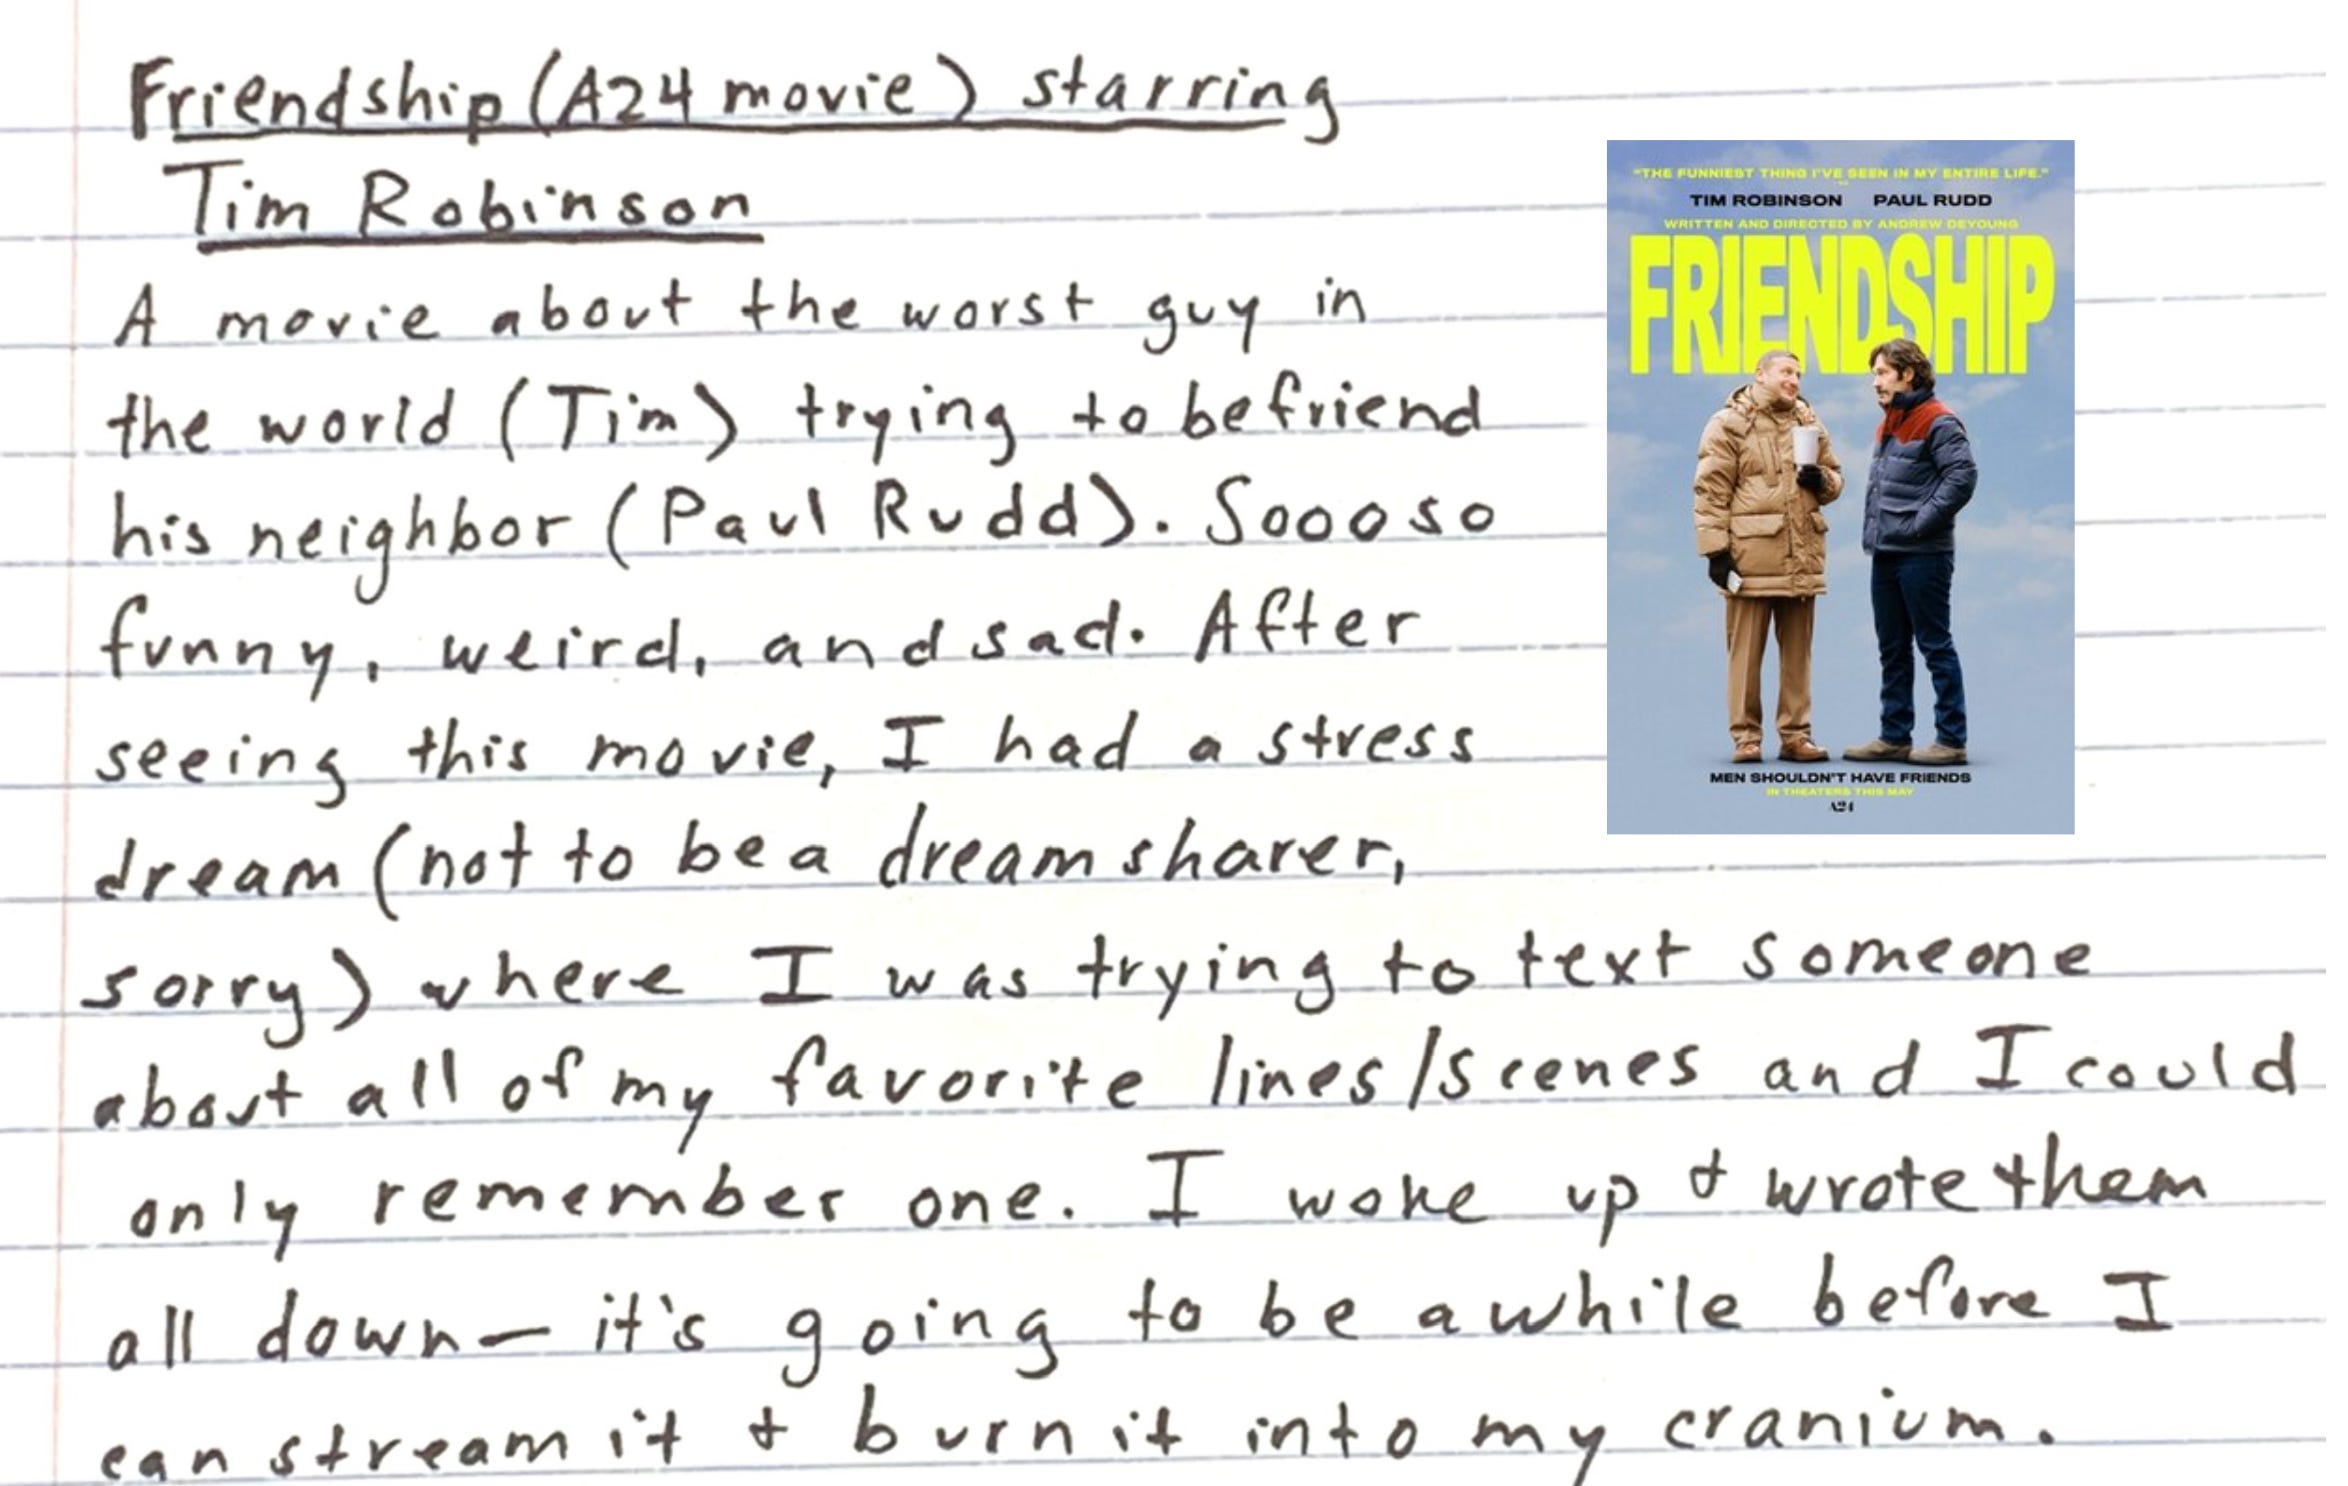 Friendship (A24 movie) starring
Tim Robinson
A movie about the worst guy in
the world (Tim) trying to befriend
his neighbor (Paul Rudd). Soooso
funny, weird, and sad. After
seeing this movie, I had a stress
dream (not to be a dream sharer,
sorry) where I was trying to text someone
about all of my favorite lines/scenes and I could
only remember one. I woke up & wrote them
all down — it's going to be awhile before I
can stream it & burn it into my cranium.
"THE FUNNIEST THING I'VE SEEN IN MY ENTIRE LIFE."
TIM ROBINSON PAUL RUDD
WRITTEN AND DIRECTED BY ANDREW DEYOUNG
FRIENDSHIP
MEN SHOULDN'T HAVE FRIENDS
IN THEATERS THIS MAY
A24